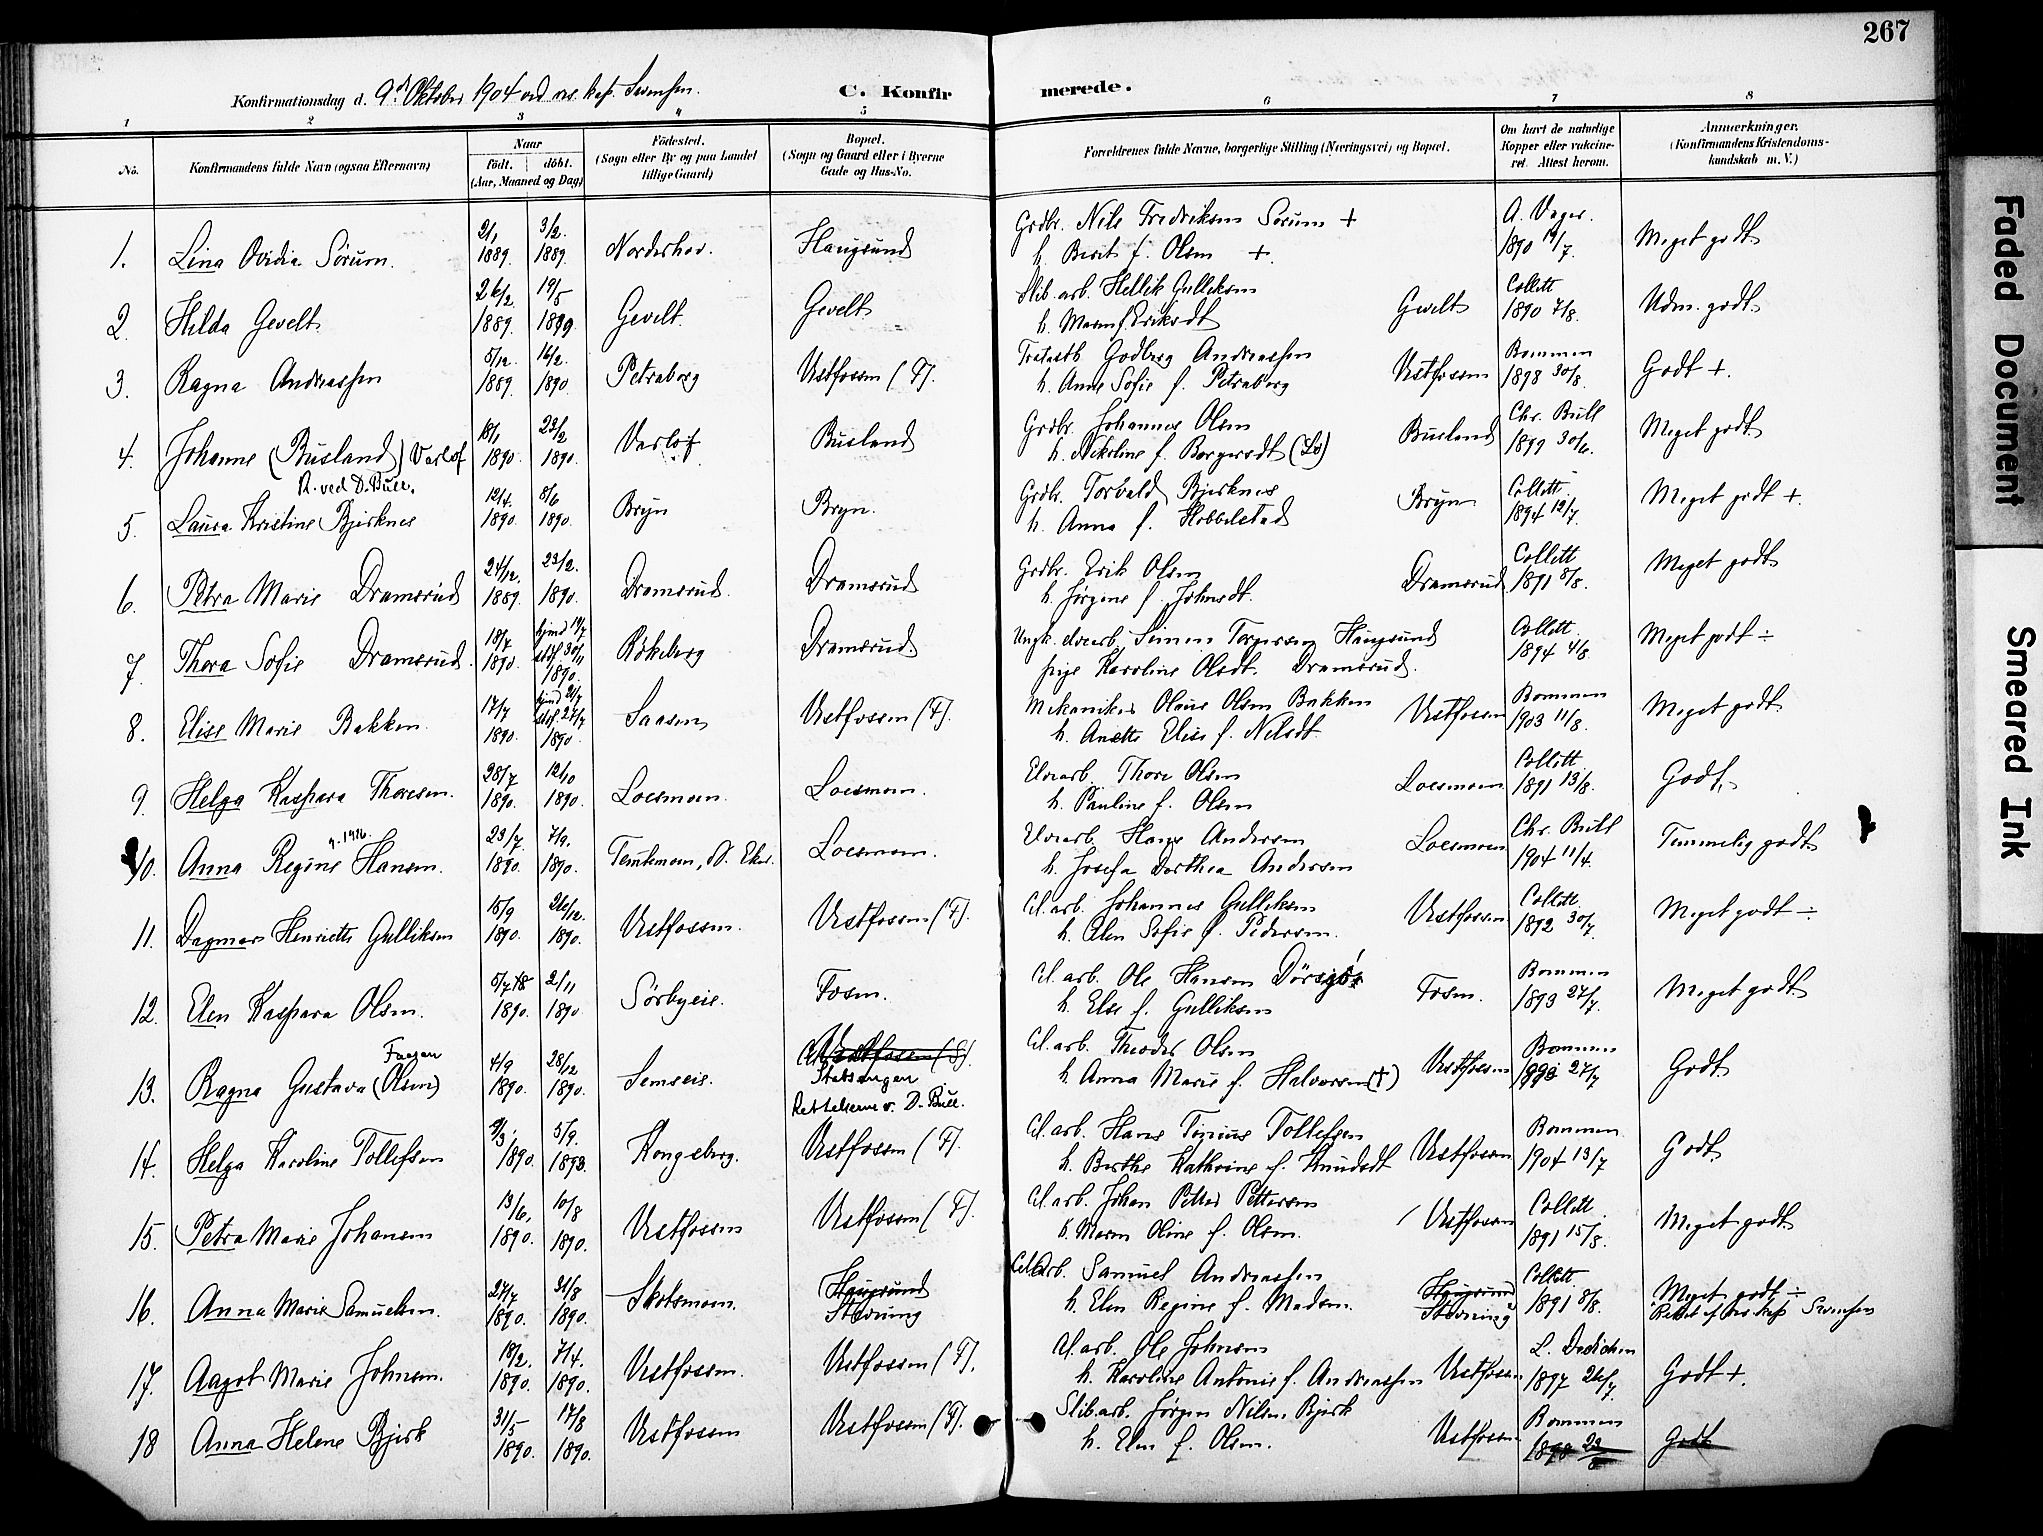 267
Konfirmationsdag d. 9de Oktober 1904 ved res. kap. Svensen.
C. Konfirmerede.
1 2 3 4 5 6 7 8
No.
Konfirmandens fulde Navn (ogsaa Efternavn)
Naar
födt. döbt.
(Aar, Maaned og Dag)
Födested.
(Sogn eller By og paa Landet
tillige Gaard)
Bopæl.
(Sogn og Gaard eller i Byerne
Gade og Hus-No.
Forældrenes fulde Navne, borgerlige Stilling (Næringsvei) og Bopæl.
Om havt de naturlige
Kopper eller vaccineret. Attest herom.
Anmærkninger.
(Konfirmandens Kristendoms-
kundskab m. V.)
1. Lina Ovidia Sörum. 2/1 1889. 3/2. 1889. Norderhov. Haugsund
Grdbr. Nils Fredriksen Sørum +
h. Berit f. Olsen +.
A. Unger. 1890 19/7. Meget godt
2. Hilda Gevelt. 26/2 1889. 19/5 1889. Gevelt. Gevelt
Slib. arb. Hellik Gulliksen
h. Maren f. Eriksdt Gevelt
Collett 1890 7/8. Udm. godt.
3. Ragna Andreassen 5/12. 1889 16/2. 1890 Petraborg Vestfossen (F).
Godberg Andreassen
h. Anne Sofie f. Petraborg Vestfossen
Bommen 1898 30/8. Godt +.
4. Johanne (Busland) Varlof 18/1 1890. 23/2 1890. Varlof Busland
R. ved D. Bull.
Grdbr. Johannes Olsen
h. Nikoline f. Borgersdt (Lo) Busland
Chr. Bull 1899 30/6. Meget godt
5. Laura Kristine Bjerknes 12/4. 1890. 8/6 1890. Bryn Bryn.
Grdbr. Torvald Bjerknes
h. Anna f. Hobbelstad Bryn
Collett. 1894 12/7. Meget godt +.
6. Petra Marie Dramsrud 24/12. 1889. 23/2. 1890. Dramsrud. Dramsrud
Grdbr. Erik Olsen
h. Jørgine f. Johnsdt. Dramsrud
Collett 1891 8/8. Meget godt
7. Thora Sofie Dramsrud. 18/7 1890. hjmd 19/7 stdf. 30/11 1890. Rökeberg Dramsrud.
Ungk. elvearb. Simen Torgersen Haugsund
pige Karoline Olsdt. Dramsrud.
Collett 1894 4/8. Meget godt ÷
8. Elise Marie Bakken. 17/7 1890. hjmd 21/7 stdf. 27/7 1890. Saasen Vestfossen (F).
Mekaniker Olaus Olsen Bakken
h. Anette Elise f. Nilsdt Vestfossen
Bommen 1903 11/8. Meget godt
9. Helga Kaspara Thoresen. 28/7 1890. 12/10 1890. Loesmoen. Loesmoen.
Elvearb. Thore Olsen
h. Pauline f. Olsen Loesmoen
Collett. 1891 13/8. Godt.
10. Anna Regine Hansen. 23/7. 1890. 7/9. 1890. Loesmoen.
g. 1916.
Elvearb. Hans Andersen
h. Josefa Dorthea Andersen Loesmoen
Chr. Bull 1904 11/4. Temmelig godt
11. Dagmar Henriette Gulliksen 15/9 1890. 26/12. 1890. Vestfossen. Vestfossen (F).
Cel. arb. Johannes Gulliksen
h. Elen Sofie f. Pedersen. Vestfossen
Collett. 1892 30/7. Meget godt ÷
12. Elen Kaspara Olsen. 1890. 2/11 1890. Sörbyeie. Fosen.
Cel. arb. Ole Hansen
h. Else f. Gulliksen Fosen.
Bommen 1893 27/7. Meget godt
13. Ragna Gustava (Olsen) Faagan 4/9 1890. 28/12 1890. Semseie. Vestfossen (F).
Stabsengen
Rettelserne v. D. Bull.
Cel. arb. Theodor Olsen
h. Anna Marie f. Halvorsen (+) Vestfossen
Bommen 1893 27/7 Godt.
14. Helga Karoline Tollefsen 1890. 5/9. 1893. Kongsberg. Vestfossen (F).
Cel. arb. Hans Tinius Tollefsen
h. Berthe Kathrine f. Knudsdt Vestfossen
Bommen 1904 13/7 Godt.
15. Petra Marie Johansen 13/6. 1890. 10/8 1890. Vestfossen Vestfossen (F).
Cel. arb. Johan Petter Pettersen
h. Maren Oline f. Olsen. Vestfossen
Collett. 1891 15/8. Meget godt
16. Anna Marie Samuelsen. 27/7 1890. 31/8 1890. Skotsmoen. Haugsund
Stenrung
Cel. arb. Samuel Andreassen
h. Elen Regine f. Madsen. Haugsund
Collett. 1891 8/8. Meget godt ÷
Rettet af res. kap. Svensen
17. Aagot Marie Johnsen. 18/2. 1890. 7/4. 1890. Vestfossen. Vestfossen (F).
Cel. arb. Ole Johnsen
h. Karoline Antonie f. Andreassen Vestfossen
L. Dedichen 1897 26/7. Godt +.
18 Anna Helene Bjerk 31/5 1890. 17/8 1890. Vestfossen Vestfossen (F).
Slib. arb. Jørgen Nilsen Bjerk
h. Elen f. Olsen. Vestfossen
Bommen 1898 23/8 Godt
Faded Document
Smeared Ink